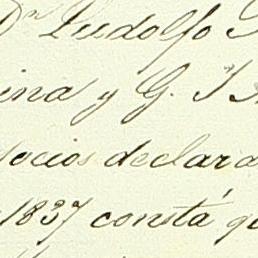 Dn Ludolfo
ina y G. T
socios declara
1837 constá qu